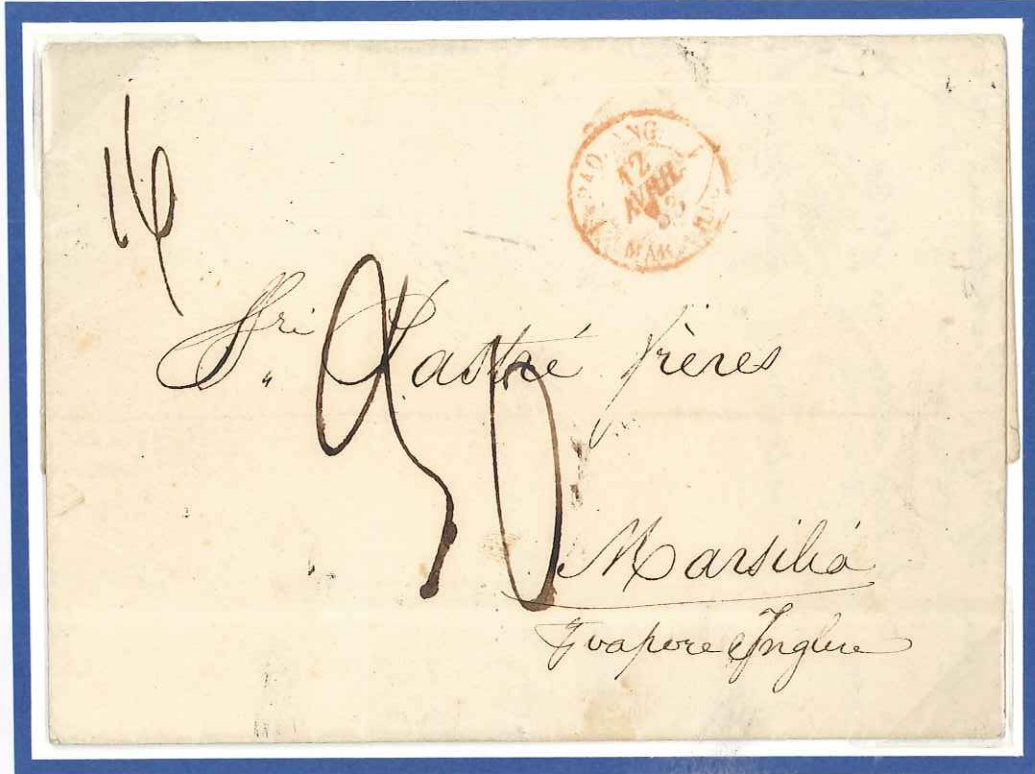 16
PAQ. ANG.
12
AVRIL
MAR
Sri Pastré frères
90
Marsiliá
vapore Inglese